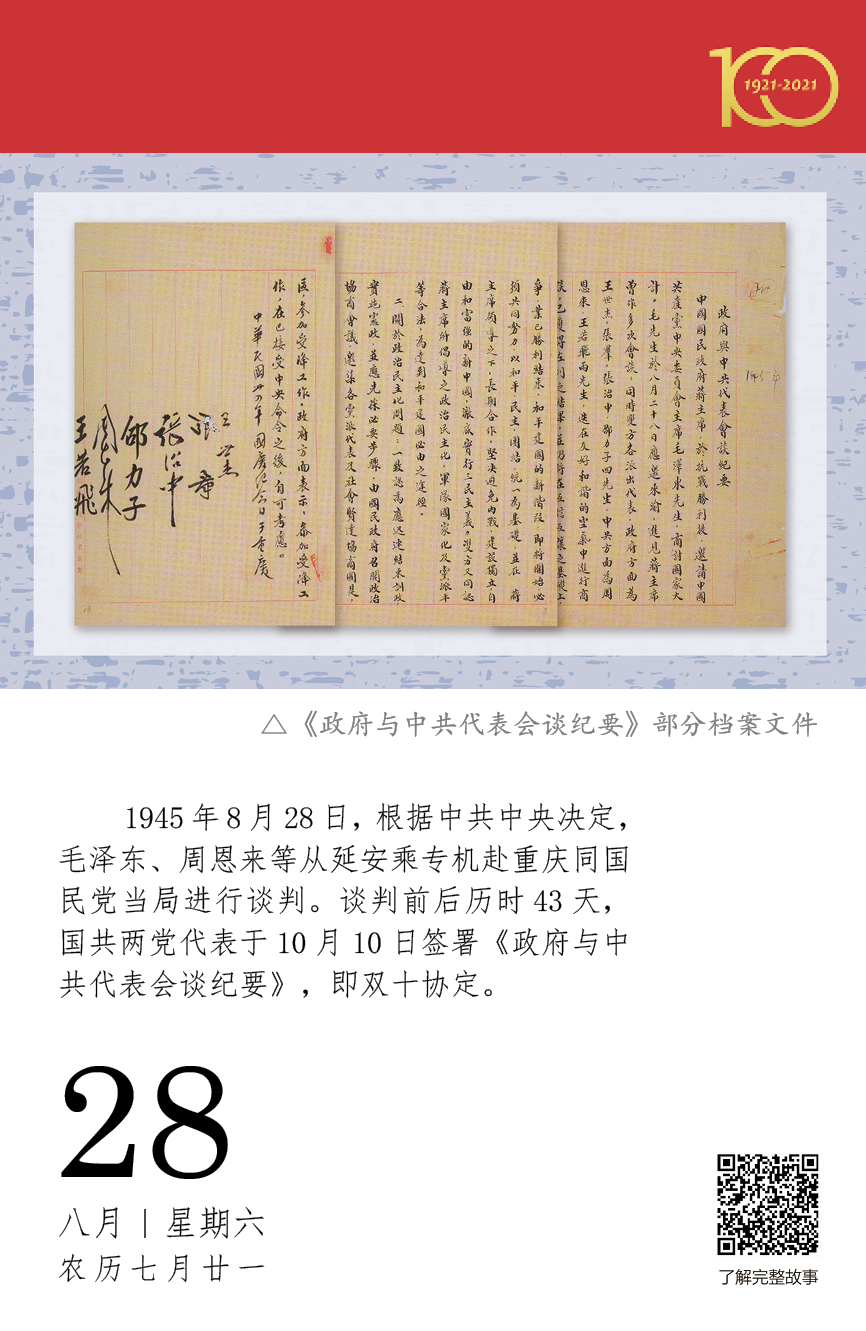 1921-2021
政府與中共代表會談紀要
中國國民政府蔣主席於抗戰勝利後，邀請中國
共產黨中央委員會主席毛澤東先生，商討國家大
計。毛先生於八月二十八日應邀來渝，進見蔣主席
曾作多次會談，同時雙方各派出代表，政府方面為
王世杰，張羣，張治中，邵力子四先生，中共方面為周
恩來，王若飛兩先生，迭在友好和諧的空氣中進行商
談，已獲得左列之結果，並仍將在互信互讓之基礎上，
爭業已勝利結束，和平建國的新階段，即將開始，必
須共同努力，以和平，民主，團結，統一為基礎，並在蔣
主席領導之下，長期合作，堅決避免內戰，建設獨立，自
由和富強的新中國，徹底實行三民主義。雙方又同認
蔣主席所倡導之政治民主化，軍隊國家化及黨派平
等合法，為達到和平建國必由之途徑。
二、關於政治民主化問題：一致認為應迅速結束訓政
實施憲政，並應先採必要步驟，由國民政府召開政治
協商會議，邀集各黨派代表及社會賢達協商國是，
區，參加受降工作，政府方面表示，參加受降工
作，在已接受中央命令之後，自可考慮。
中華民國卅四年國慶紀念日于重慶
王世杰
張羣
張治中
邵力子
周恩來
王若飛
△《政府与中共代表会谈纪要》部分档案文件
1945 年 8 月 28 日，根据中共中央决定，
毛泽东、周恩来等从延安乘专机赴重庆同国
民党当局进行谈判。谈判前后历时 43 天，
国共两党代表于 10 月 10 日签署《政府与中
共代表会谈纪要》，即双十协定。
28
八月｜星期六
农历七月廿一
了解完整故事